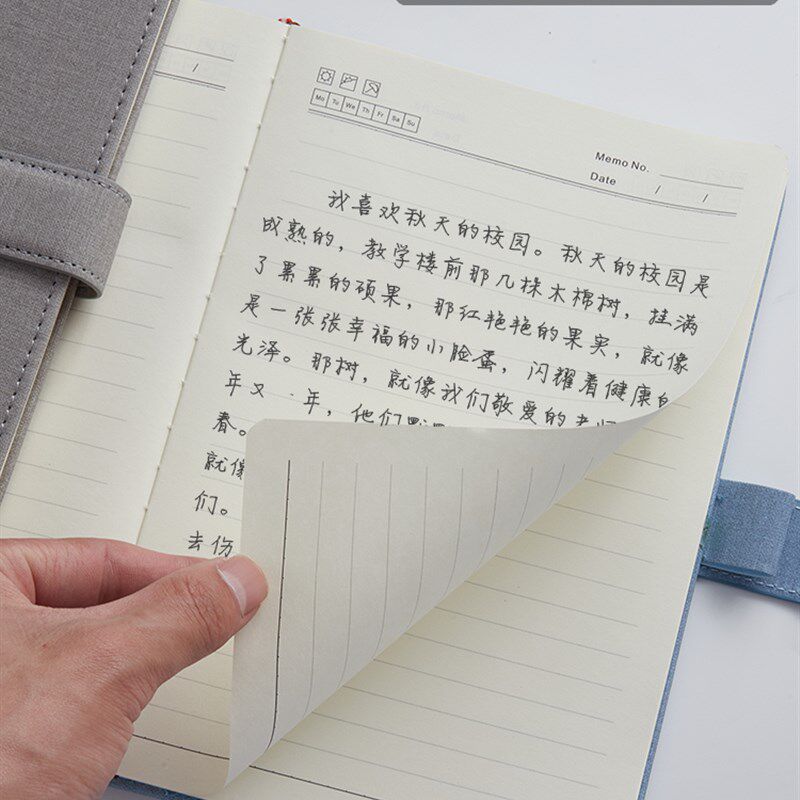 Mo Tu We Th Fr Sa Su
Memo No.
Date / /
/
我喜欢秋天的校园。秋天的校园是
成熟的，教学楼前那几株木棉树，挂满
了累累的硕果，那红艳艳的果实，就像
是一张张幸福的小脸蛋，闪耀着健康的
光泽。那树，就像我们敬爱的老师
年又一年，他们默默
春。
就像
们。
去伤